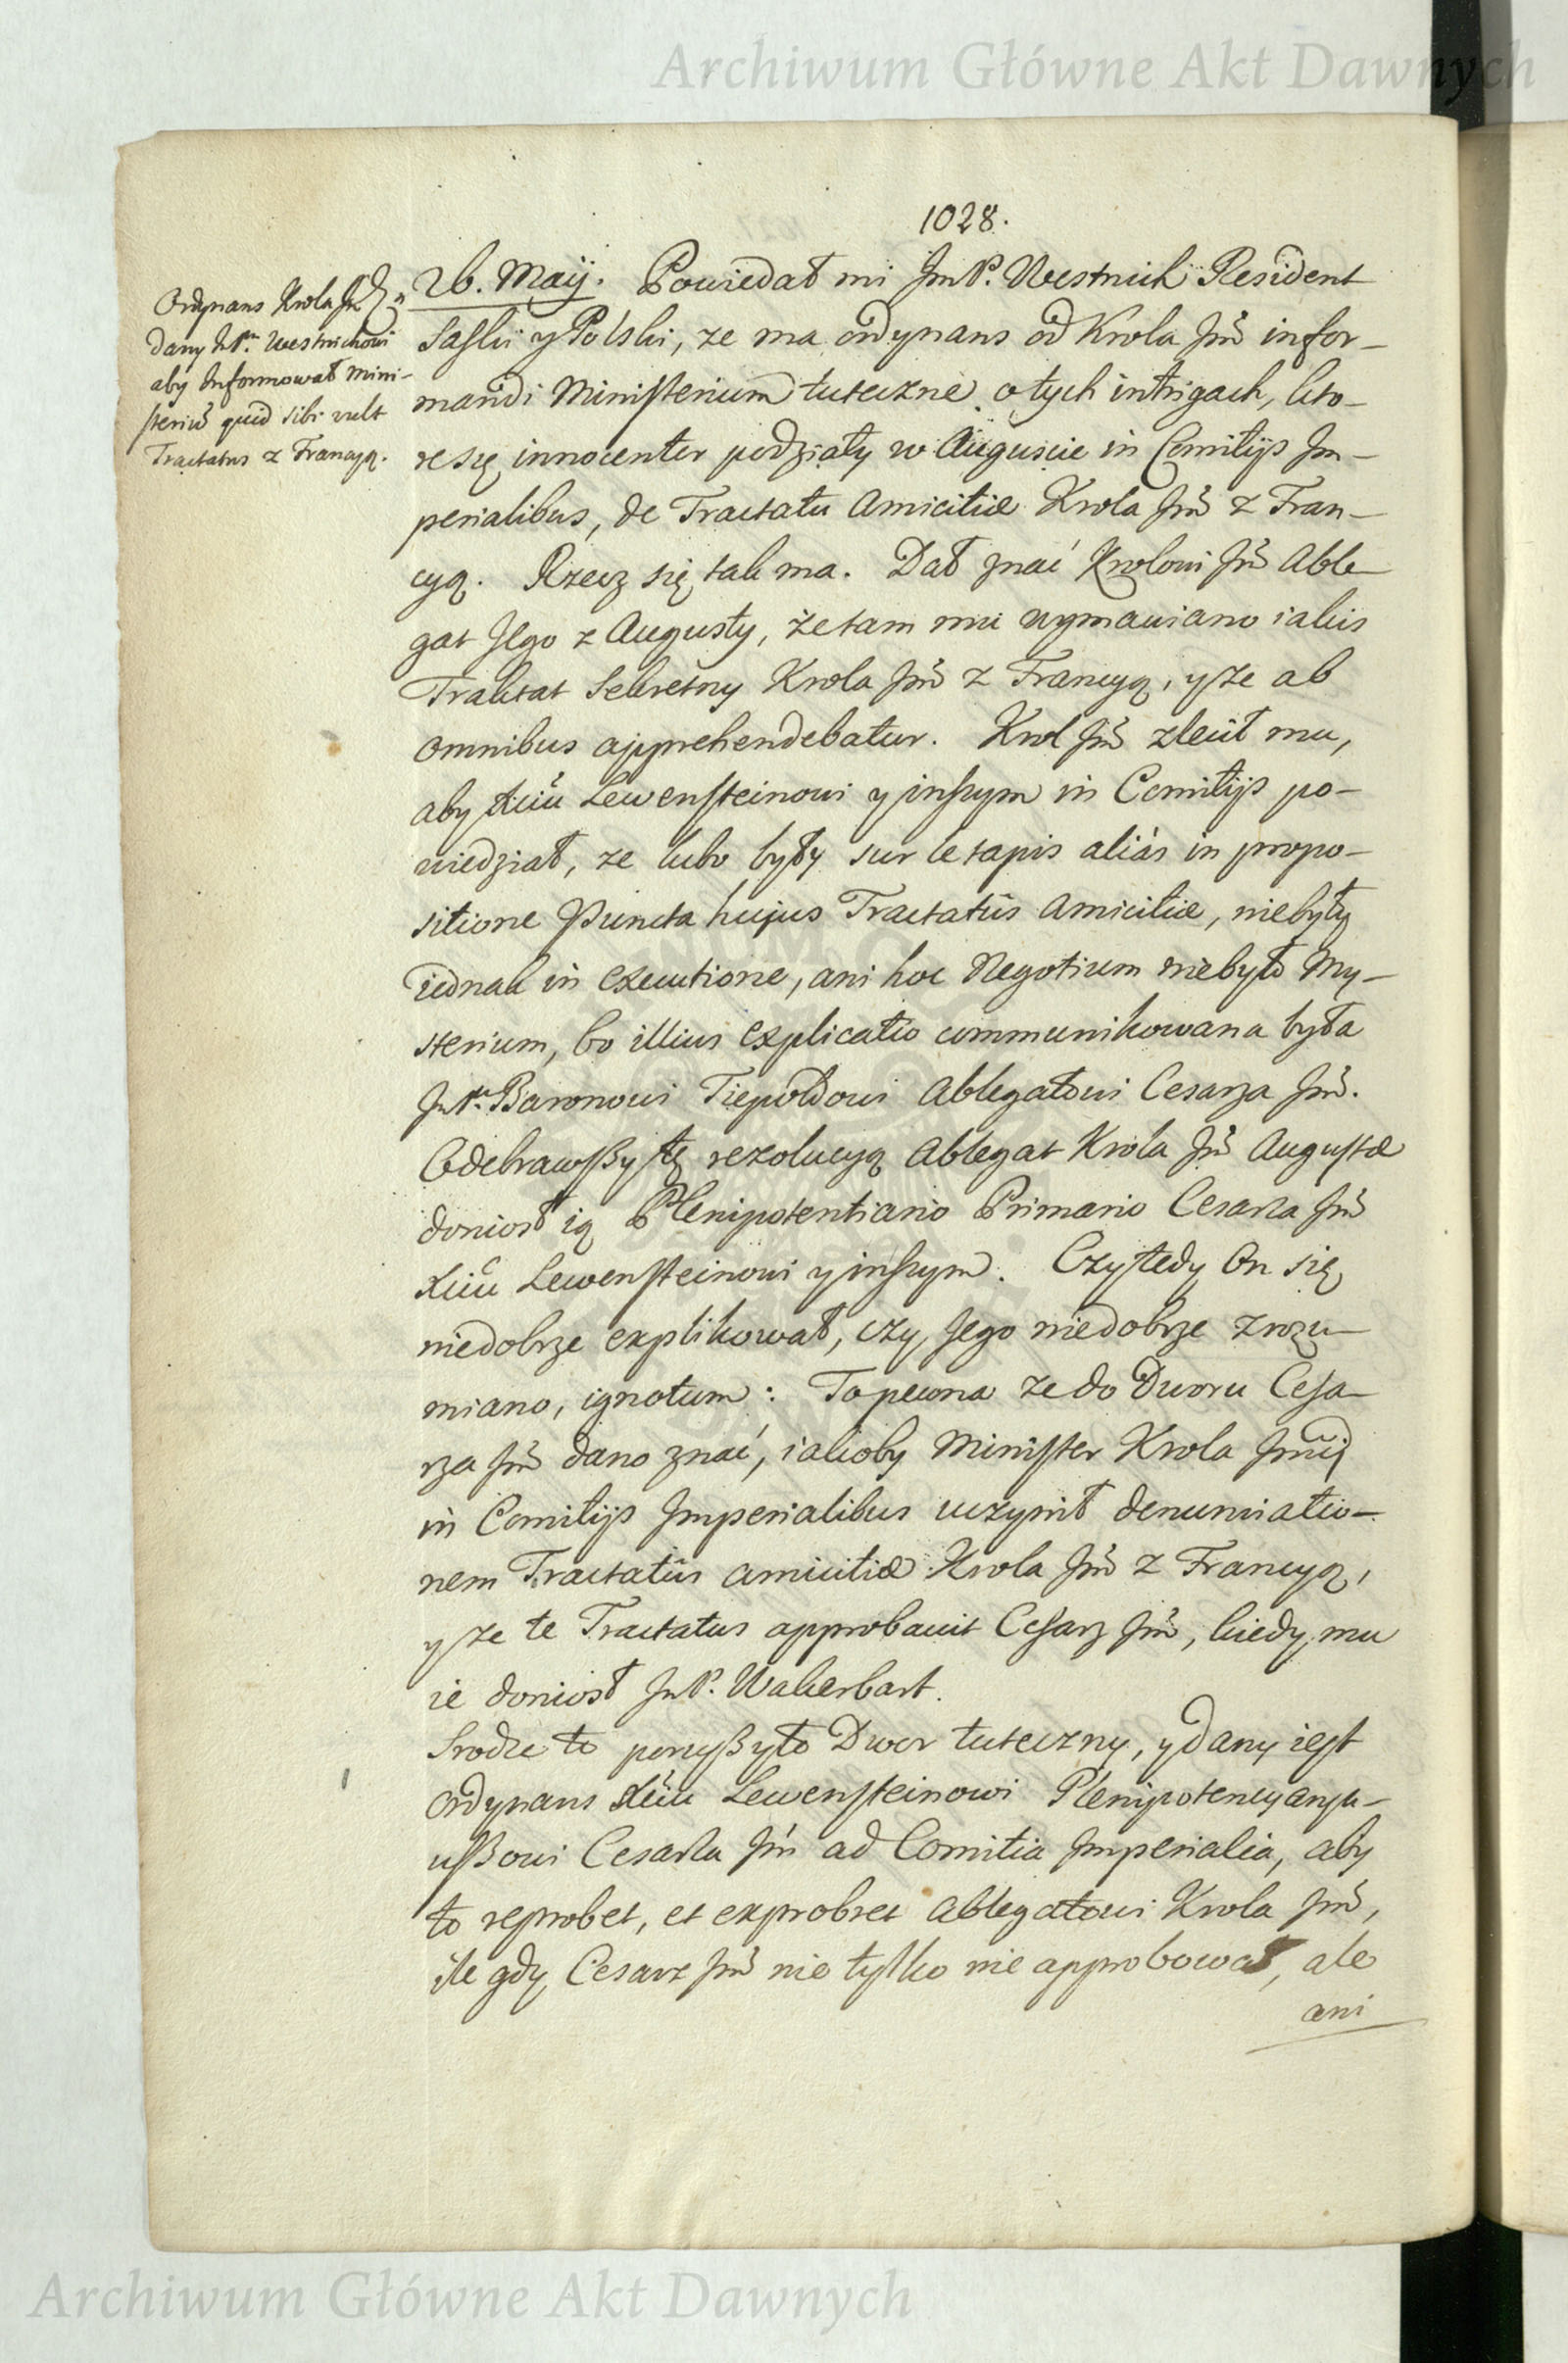 Archiwum Główne Akt Dawnych
1028.
Ordynans Krola Jm
dany JmPu Westnichowi
aby Informował Mini-
steriũ quid sibi vult
Tractatus z Francyą.
26. Maij. Powiedał mi JmP. Westnich Resident
Saski y Polski, ze ma ordynans od Krola Jm̃ infor-
mandi Ministerium tuteczne o tych intrigach, kto-
re się innocenter podziały w Auguscie in Comitijs Im-
perialibus, de Tractatu Amicitiæ Krola Jm̃ z Fran-
cyą. Rzecz się tak ma. Dał znać Krolowi Jm̃ Able-
gat Jego z Augusty, że tam mu wymawiano iakis
Traktat Sekretny Krola Jm̃ z Francyą, y ze ab
omnibus apprehendebatur. Krol Jm̃ zlecił mu,
aby Xciu Lewensteinowi y inszym in Comitijs po-
wiedział, ze lubo były sur le tapis aliàs in propo-
sitione Puncta hujus Tractatûs Amicitiæ, niebyły
iednak in executione, ani hoc Negotium niebyło My-
sterium, bo illius explicatio communikowana była
JmPu Baronowi Tiepoldowi Ablegatowi Cesarza Jm̃.
Odebrawszy tę rezolucyą Ablegat Krola Jm̃ Augustæ
doniosł ią Plenipotentiario Primario Cesarza Jm̃
Xciu Lewensteinowi y inszym. Czy tedy On się
niedobrze explikował, czy Jego niedobrze zrozu-
miano, ignotum: To pewna ze do Dworu Cesa-
rza Jm̃ dano znać, iakoby Minister Krola Jmci
in Comitijs Imperialibus uczynił denunciatio-
nem Tractatûs amicitiæ Krola Jm̃ z Francyą,
y ze te Tractatus approbavit Cesarz Jm̃, kiedy mu
ie doniosł JmP. Wakerbart.
Srodze to poruszyło Dwor tuteczny, y dany iest
ordynans Xciu Lewensteinowi Plenipotencyaryu-
uszowi Cesarza Jm̃ ad Comitia Imperialia, aby
to reprobet, et exprobret Ablegatowi Krola Jm̃,
ile gdy Cesarz Jm̃ nie tylko nie approbował, ale
ani
Archiwum Główne Akt Dawnych